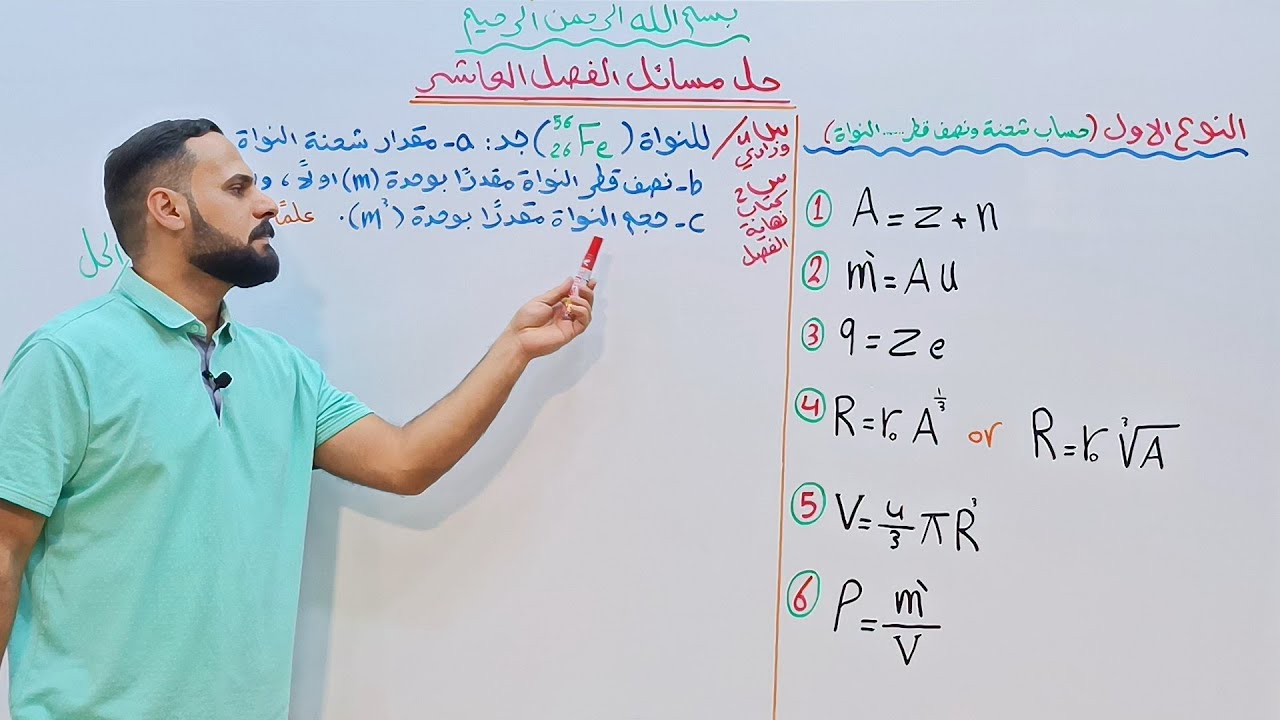 بسم الله الرحمن الرحيم
حل مسائل الفصل العاشر
النوع الاول (حساب شحنة ونصف قطر ..... النواة)
① A = Z + n
② m̀ = A u
③ q = Z e
④ R = r₀ A^⅓ or R = r₀ ∛A
⑤ V = 4/3 π R³
⑥ ρ = m̀/V
وزاري
للنواة (⁵⁶₂₆Fe) جد: a- مقدار شحنة النواة
س2 كتاب نهاية الفصل
b- نصف قطر النواة مقدرًا بوحدة (m) اولاً،
c- حجم النواة مقدرًا بوحدة (m³). علمًا
الحل